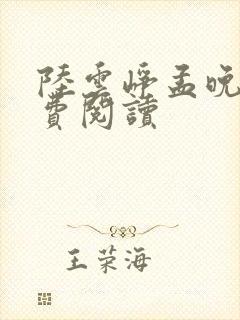 陸雲崢孟晚
費閱讀
王荣海